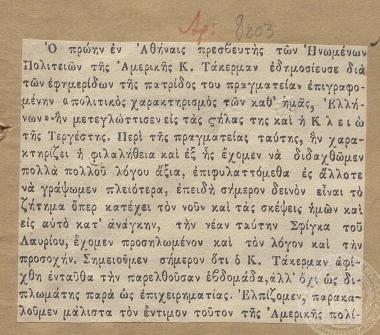 Αρ: 8203
Ὁ πρώην ἐν Ἀθήναις πρεσβευτὴς τῶν Ἡνωμένων
Πολιτειῶν τῆς Ἀμερικῆς Κ. Τάκερμαν ἐδημοσίευσε διὰ
τῶν ἐφημερίδων τῆς πατρίδος του πραγματείαν ἐπιγραφο-
μένην «πολιτικὸς χαρακτηρισμὸς τῶν καθ' ἡμᾶς, Ἑλλή-
νων» ἣν μετεγλώττισεν εἰς τὰς στήλας της καὶ ἡ Κλειὼ
τῆς Τεργέστης. Περὶ τῆς πραγματείας ταύτης, ἣν χαρακ-
τηρίζει ἡ φιλαλήθεια καὶ ἐξ ἧς ἔχομεν νὰ διδαχθῶμεν
πολλὰ πολλοῦ λόγου ἄξια, ἐπιφυλαττόμεθα ἐς ἄλλοτε
νὰ γράψωμεν πλειότερα, ἐπειδὴ σήμερον δεινὸν εἶναι τὸ
ζήτημα ὅπερ κατέχει τὸν νοῦν καὶ τὰς σκέψεις ἡμῶν καὶ
εἰς αὐτὸ κατ' ἀνάγκην, τὴν νέαν ταύτην Σφίγκα τοῦ
Λαυρίου, ἔχομεν προσηλωμένον καὶ τὸν λόγον καὶ τὴν
προσοχήν. Σημειοῦμεν σήμερον ὅτι ὁ Κ. Τάκερμαν ἀφί-
χθη ἐνταῦθα τὴν παρελθοῦσαν ἑβδομάδα, ἀλλ' ὄχι ὡς δι-
πλωμάτης παρὰ ὡς ἐπιχειρηματίας. Ἐλπίζομεν, παρακα-
λοῦμεν μάλιστα τὸν ἔντιμον τοῦτον τῆς Ἀμερικῆς πολί-